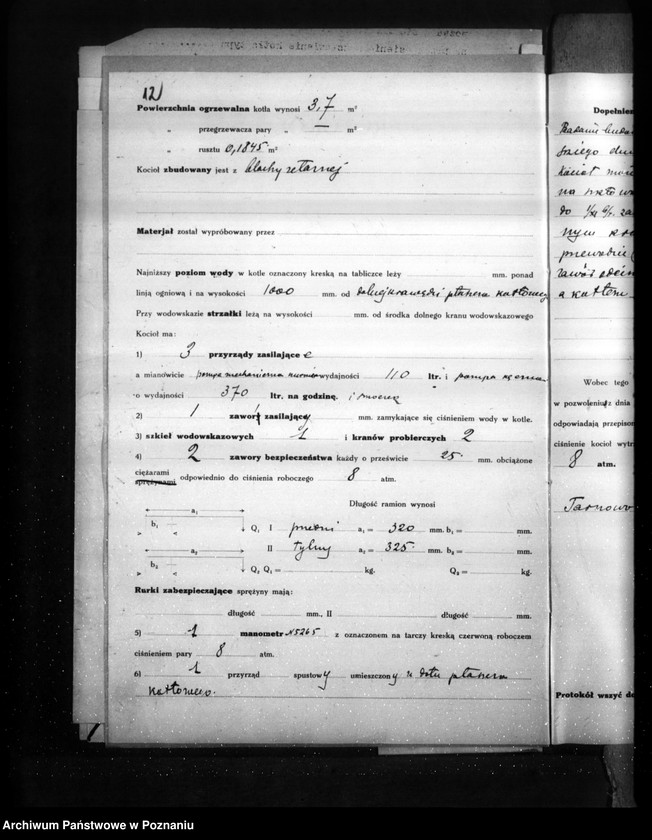 12)
Powierzchnia ogrzewalna kotła wynosi 3,7 m²
„ przegrzewacza pary „ — m²
„ rusztu 0,1845 m²
Kocioł zbudowany jest z blachy żelaznej
Materjał został wypróbowany przez
Najniższy poziom wody w kotle oznaczony kreską na tabliczce leży mm. ponad
linją ogniową i na wysokości 1000 mm. od dolnej krawędzi płaszcza kotłowego
Przy wodowskazie strzałki leżą na wysokości mm. od środka dolnego kranu wodowskazowego
Kocioł ma:
1) 3 przyrządy zasilające
a mianowicie pompa mechaniczna wydajności 110 ltr. i pompa ręczna
o wydajności 370 ltr. na godzinę. i
2) 1 zawór zasilający mm. zamykające się ciśnieniem wody w kotle.
3) szkieł wodowskazowych 1 i kranów probierczych 2
4) 2 zawory bezpieczeństwa każdy o prześwicie 25 mm. obciążone
ciężarami
sprężynami odpowiednio do ciśnienia roboczego 8 atm.
Długość ramion wynosi
a₁
b₁ Q₁ I przedni a₁ = 320 mm. b₁ = mm.
a₂ II tylny a₂ = 325 mm. b₂ = mm.
b₂ Q₂ Q₁ = kg. Q₂ = kg.
Rurki zabezpieczające sprężyny mają:
długość mm., II długość mm.
5) 1 manometr N5265 z oznaczonem na tarczy kreską czerwoną roboczem
ciśnieniem pary 8 atm.
6) 1 przyrząd spustowy umieszczony u dołu płaszcza
kotłowego.
Dopełnien
Badanie
kocioł
na
do
a kotłem
Wobec tego
w pozwoleniu z dnia
odpowiadają przepisom
ciśnienie kocioł wytr
8 atm.
Tarnowo
Protokół wszyć do
Archiwum Państwowe w Poznaniu